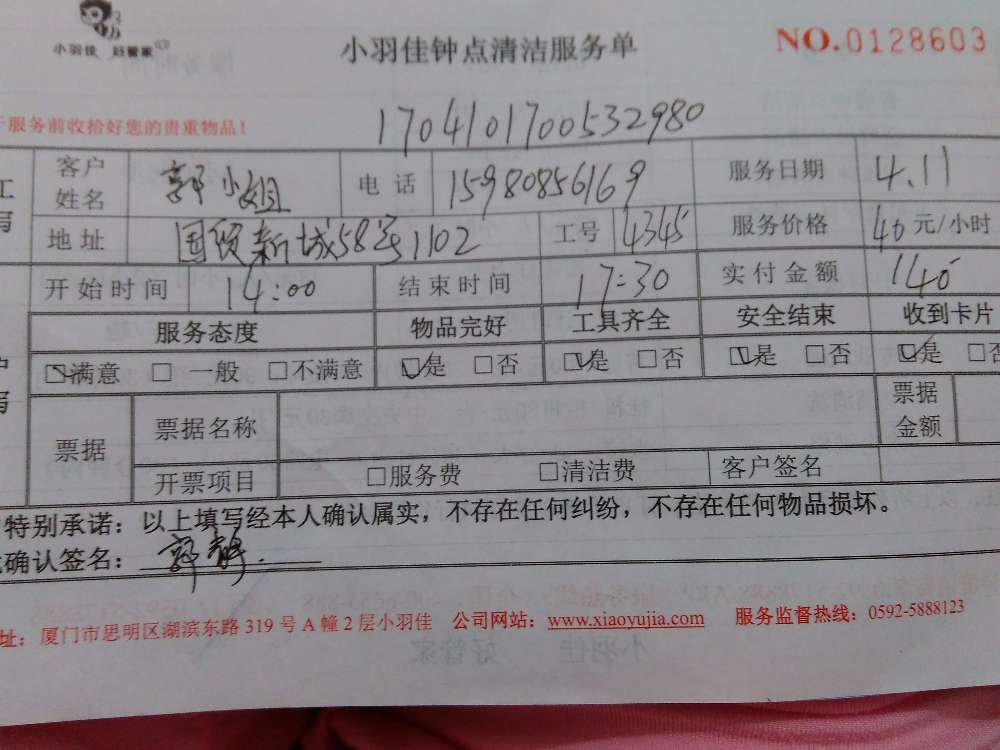 小羽佳 好管家
小羽佳钟点清洁服务单
NO.0128603
服务前收拾好您的贵重物品！
1704101700532980
客户姓名 郭小姐 电话 15980856169 服务日期 4.11
地址 国贸新城58号1102 工号 4345 服务价格 40元/小时
开始时间 14:00 结束时间 17:30 实付金额 140
服务态度 物品完好 工具齐全 安全结束 收到卡片
☑满意 □一般 □不满意 ☑是 □否 ☑是 □否 ☑是 □否 ☑是 □否
票据 票据名称 票据金额
开票项目 □服务费 □清洁费 客户签名
特别承诺：以上填写经本人确认属实，不存在任何纠纷，不存在任何物品损坏。
确认签名：郭静
址：厦门市思明区湖滨东路319号A幢2层小羽佳 公司网站：www.xiaoyujia.com 服务监督热线：0592-5888123